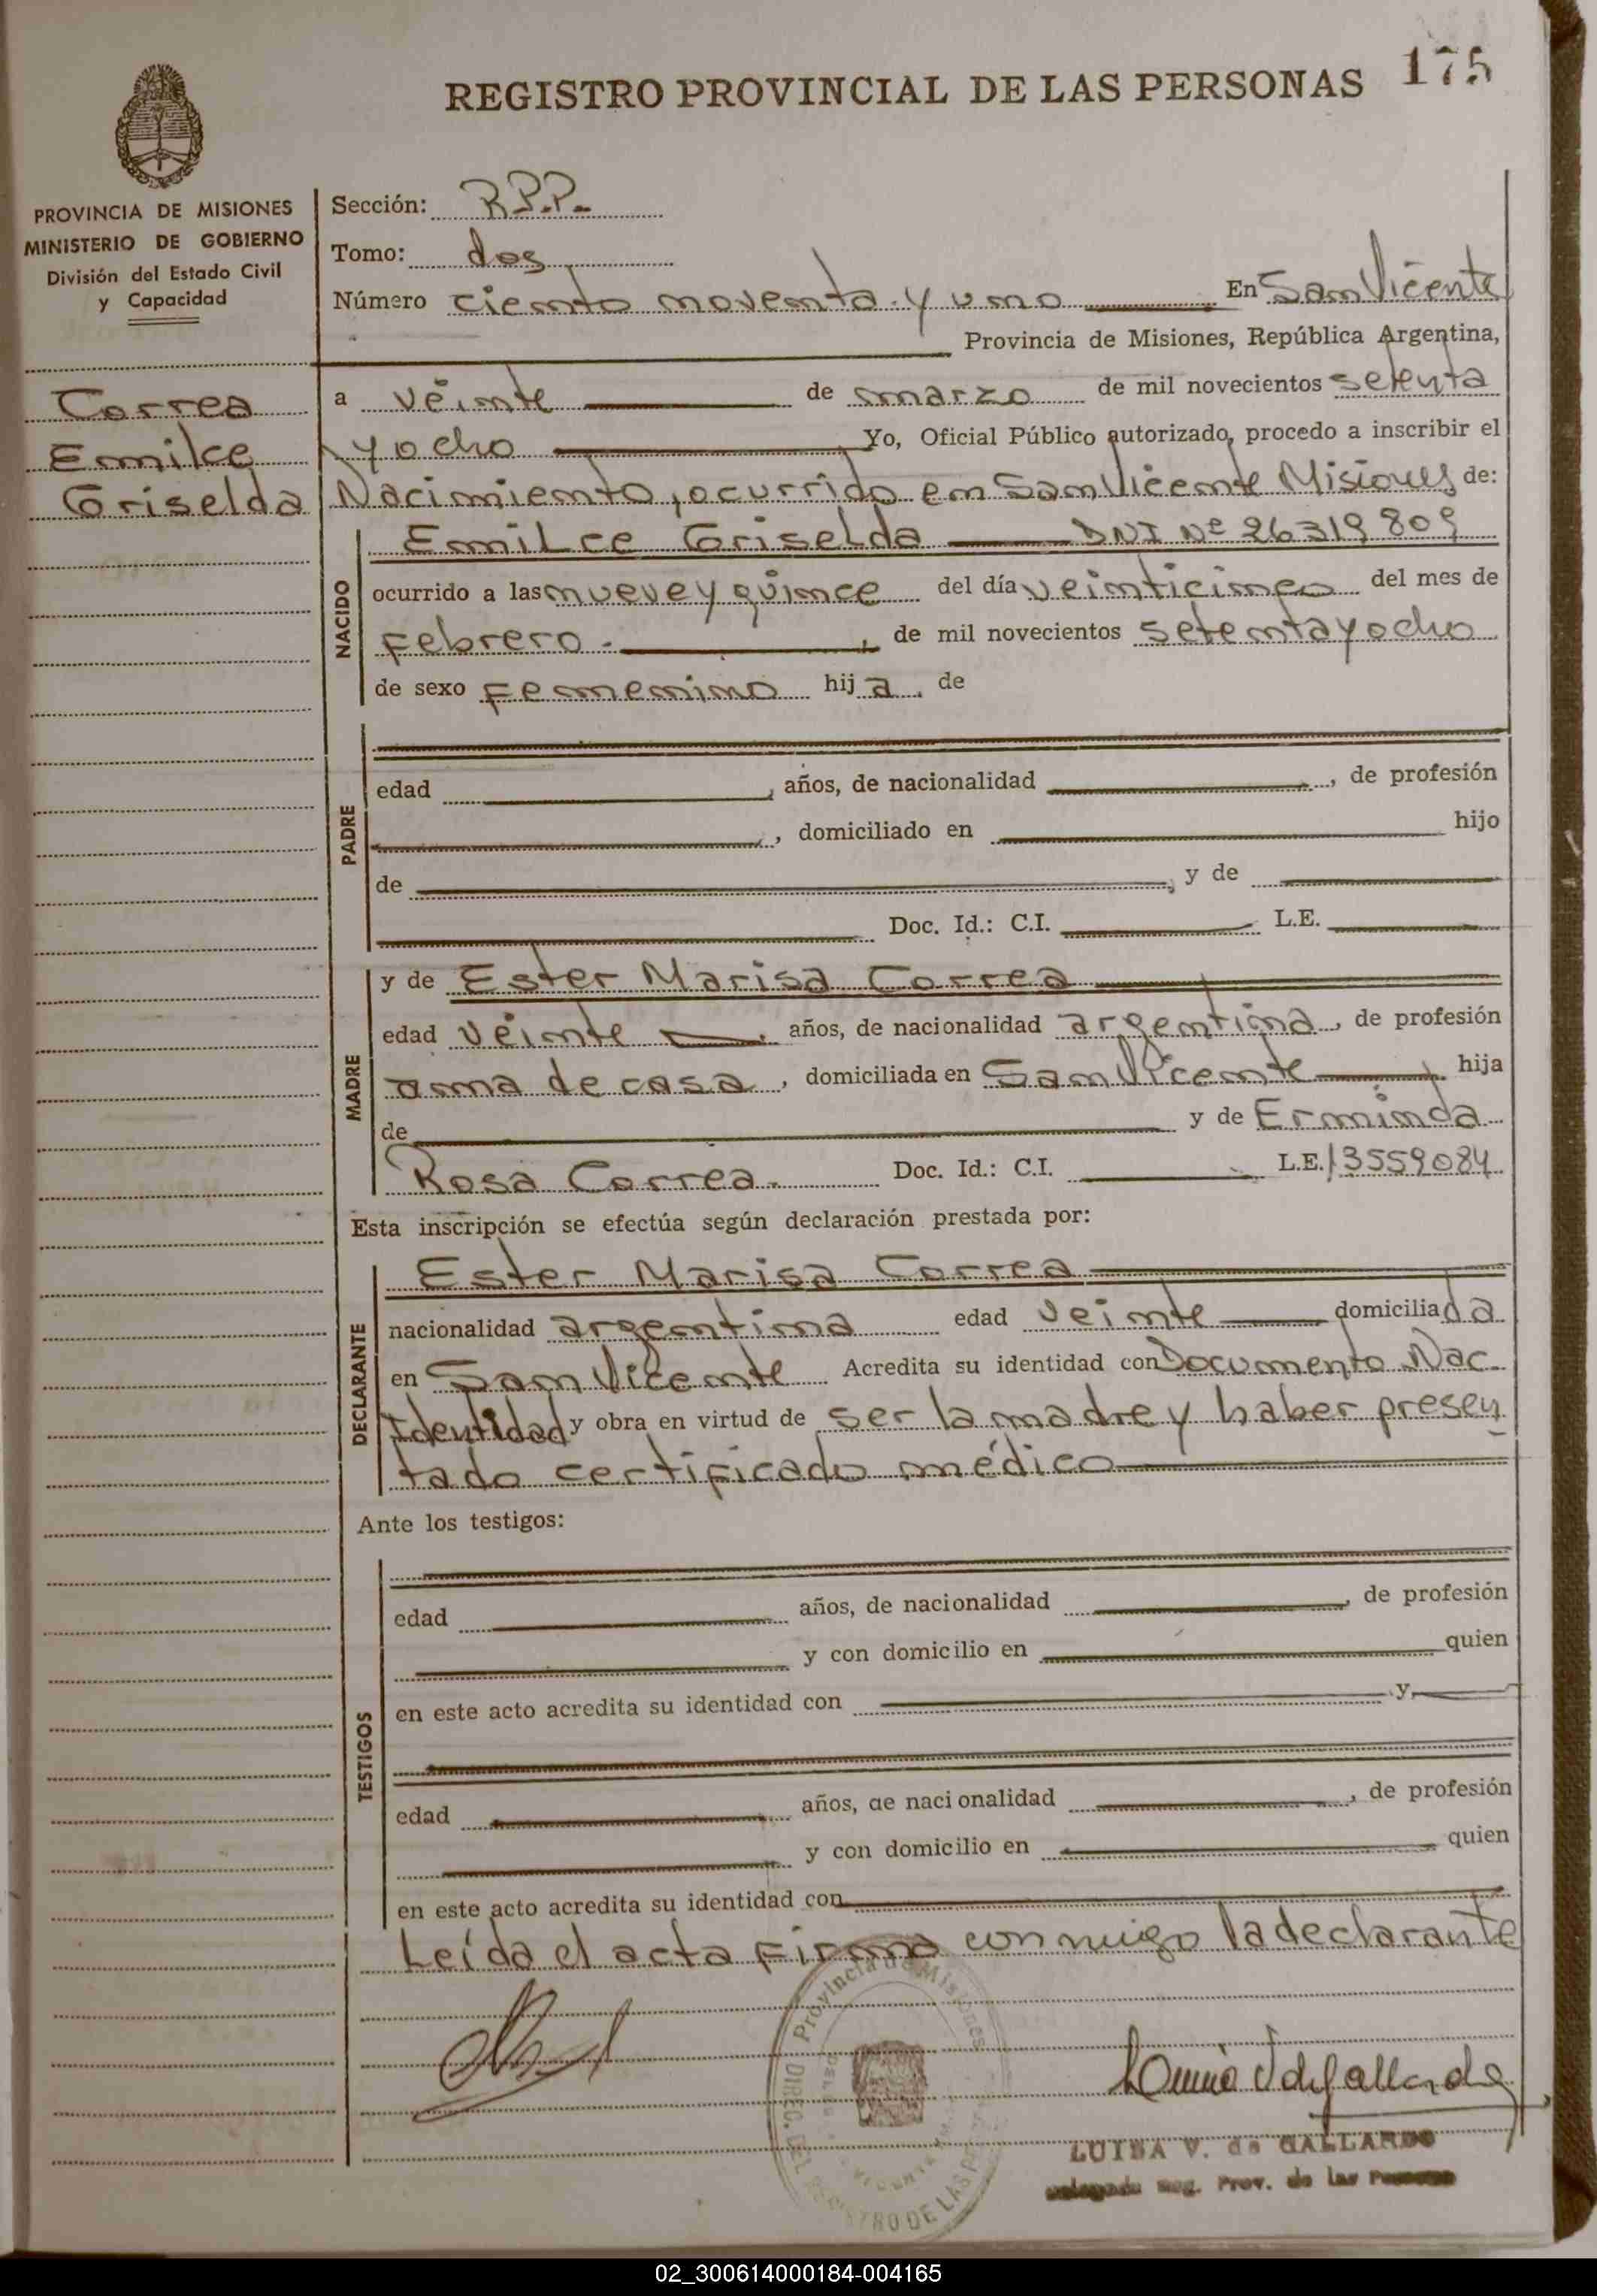 REGISTRO PROVINCIAL DE LAS PERSONAS 175
PROVINCIA DE MISIONES
MINISTERIO DE GOBIERNO
División del Estado Civil
y Capacidad
Correa
Emilce
Griselda
Sección: R.P.P.
Tomo: dos
Número ciento noventa y uno En San Vicente
Provincia de Misiones, República Argentina,
a veinte de marzo de mil novecientos setenta
y ocho Yo, Oficial Público autorizado, procedo a inscribir el
Nacimiento, ocurrido en San Vicente Misiones de:
NACIDO
Emilce Griselda DNI Nº 26319809
ocurrido a las nueve y quince del día veinticinco del mes de
Febrero. , de mil novecientos setenta y ocho
de sexo Femenino hij a. de
PADRE
edad , años, de nacionalidad , de profesión
, domiciliado en hijo
de , y de
Doc. Id.: C.I. L.E.
MADRE
y de Ester Marisa Correa
edad veinte , años, de nacionalidad argentina, de profesión
ama de casa, domiciliada en San Vicente hija
de y de Erminda
Rosa Correa. Doc. Id.: C.I. L.E. 13559084
Esta inscripción se efectúa según declaración prestada por:
DECLARANTE
Ester Marisa Correa
nacionalidad argentina edad veinte domiciliada
en San Vicente Acredita su identidad con Documento Nac.
Identidad y obra en virtud de ser la madre y haber presen
tado certificado médico
Ante los testigos:
TESTIGOS
edad años, de nacionalidad , de profesión
y con domicilio en quien
en este acto acredita su identidad con y
edad años, de nacionalidad , de profesión
y con domicilio en quien
en este acto acredita su identidad con
Leída el acta Firma conmigo la declarante
Provincia de Misiones
DIREC. DEL REGISTRO DE LAS
LUISA V. de GALLARDO
Delegada Reg. Prov. de las Personas
02_300614000184-004165